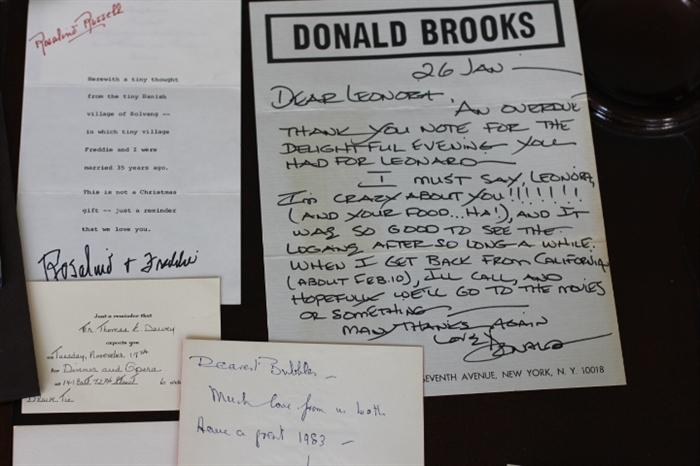 Rosalind Russell
Herewith a tiny thought
from the tiny Danish
village of Solvang --
in which tiny village
Freddie and I were
married 35 years ago.
This is not a Christmas
gift -- just a reminder
that we love you.
Rosalind + Freddie
DONALD BROOKS
26 JAN —
DEAR LEONORA,
AN OVERDUE
THANK YOU NOTE FOR THE
DELIGHTFUL EVENING YOU
HAD FOR LEONARD —
I MUST SAY, LEONORA,
I'M CRAZY ABOUT YOU!!!!!!!
(AND YOUR FOOD...HA!), AND IT
WAS SO GOOD TO SEE THE
LOGANS AFTER SO LONG A WHILE.
WHEN I GET BACK FROM CALIFORNIA
(ABOUT FEB.10), I'LL CALL, AND
HOPEFULLY WE'LL GO TO THE MOVIES
OR SOMETHING.
MANY THANKS AGAIN
LOVE,
DONALD
SEVENTH AVENUE, NEW YORK, N. Y. 10018
Just a reminder that
Mr. Thomas E. Dewey
expects you
on Tuesday, November,
for Dinner and Opera
at 141 East 72nd Street
Black Tie
Dearest Bubbles –
Much love from us both
Have a great 1983 –